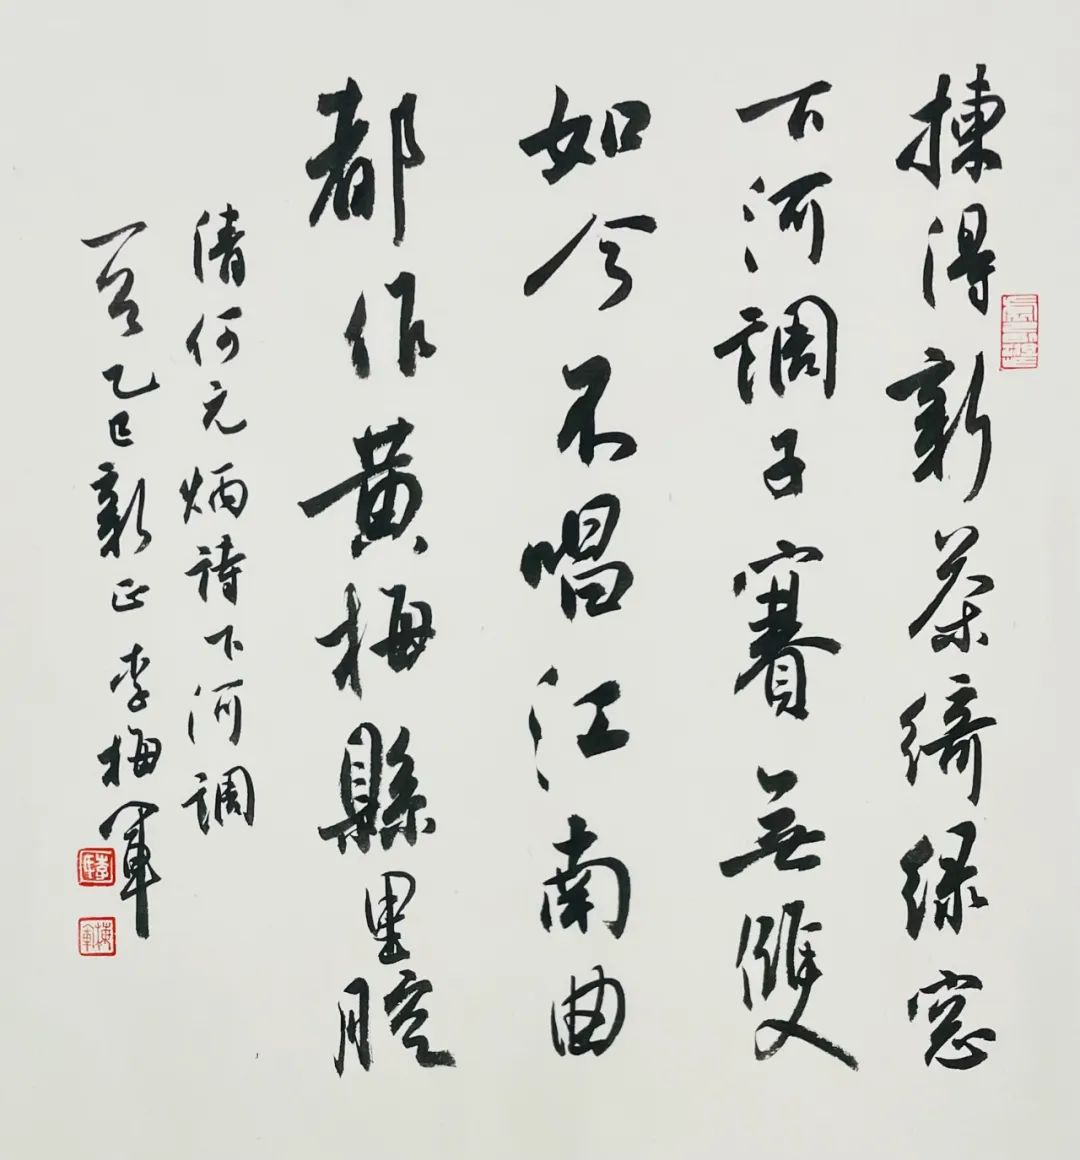 揀得新茶綺緑窓
下河調子賽無雙
如今不唱江南曲
都作黄梅縣里腔
清何元炳詩下河調
一首乙巳新正李梅軍